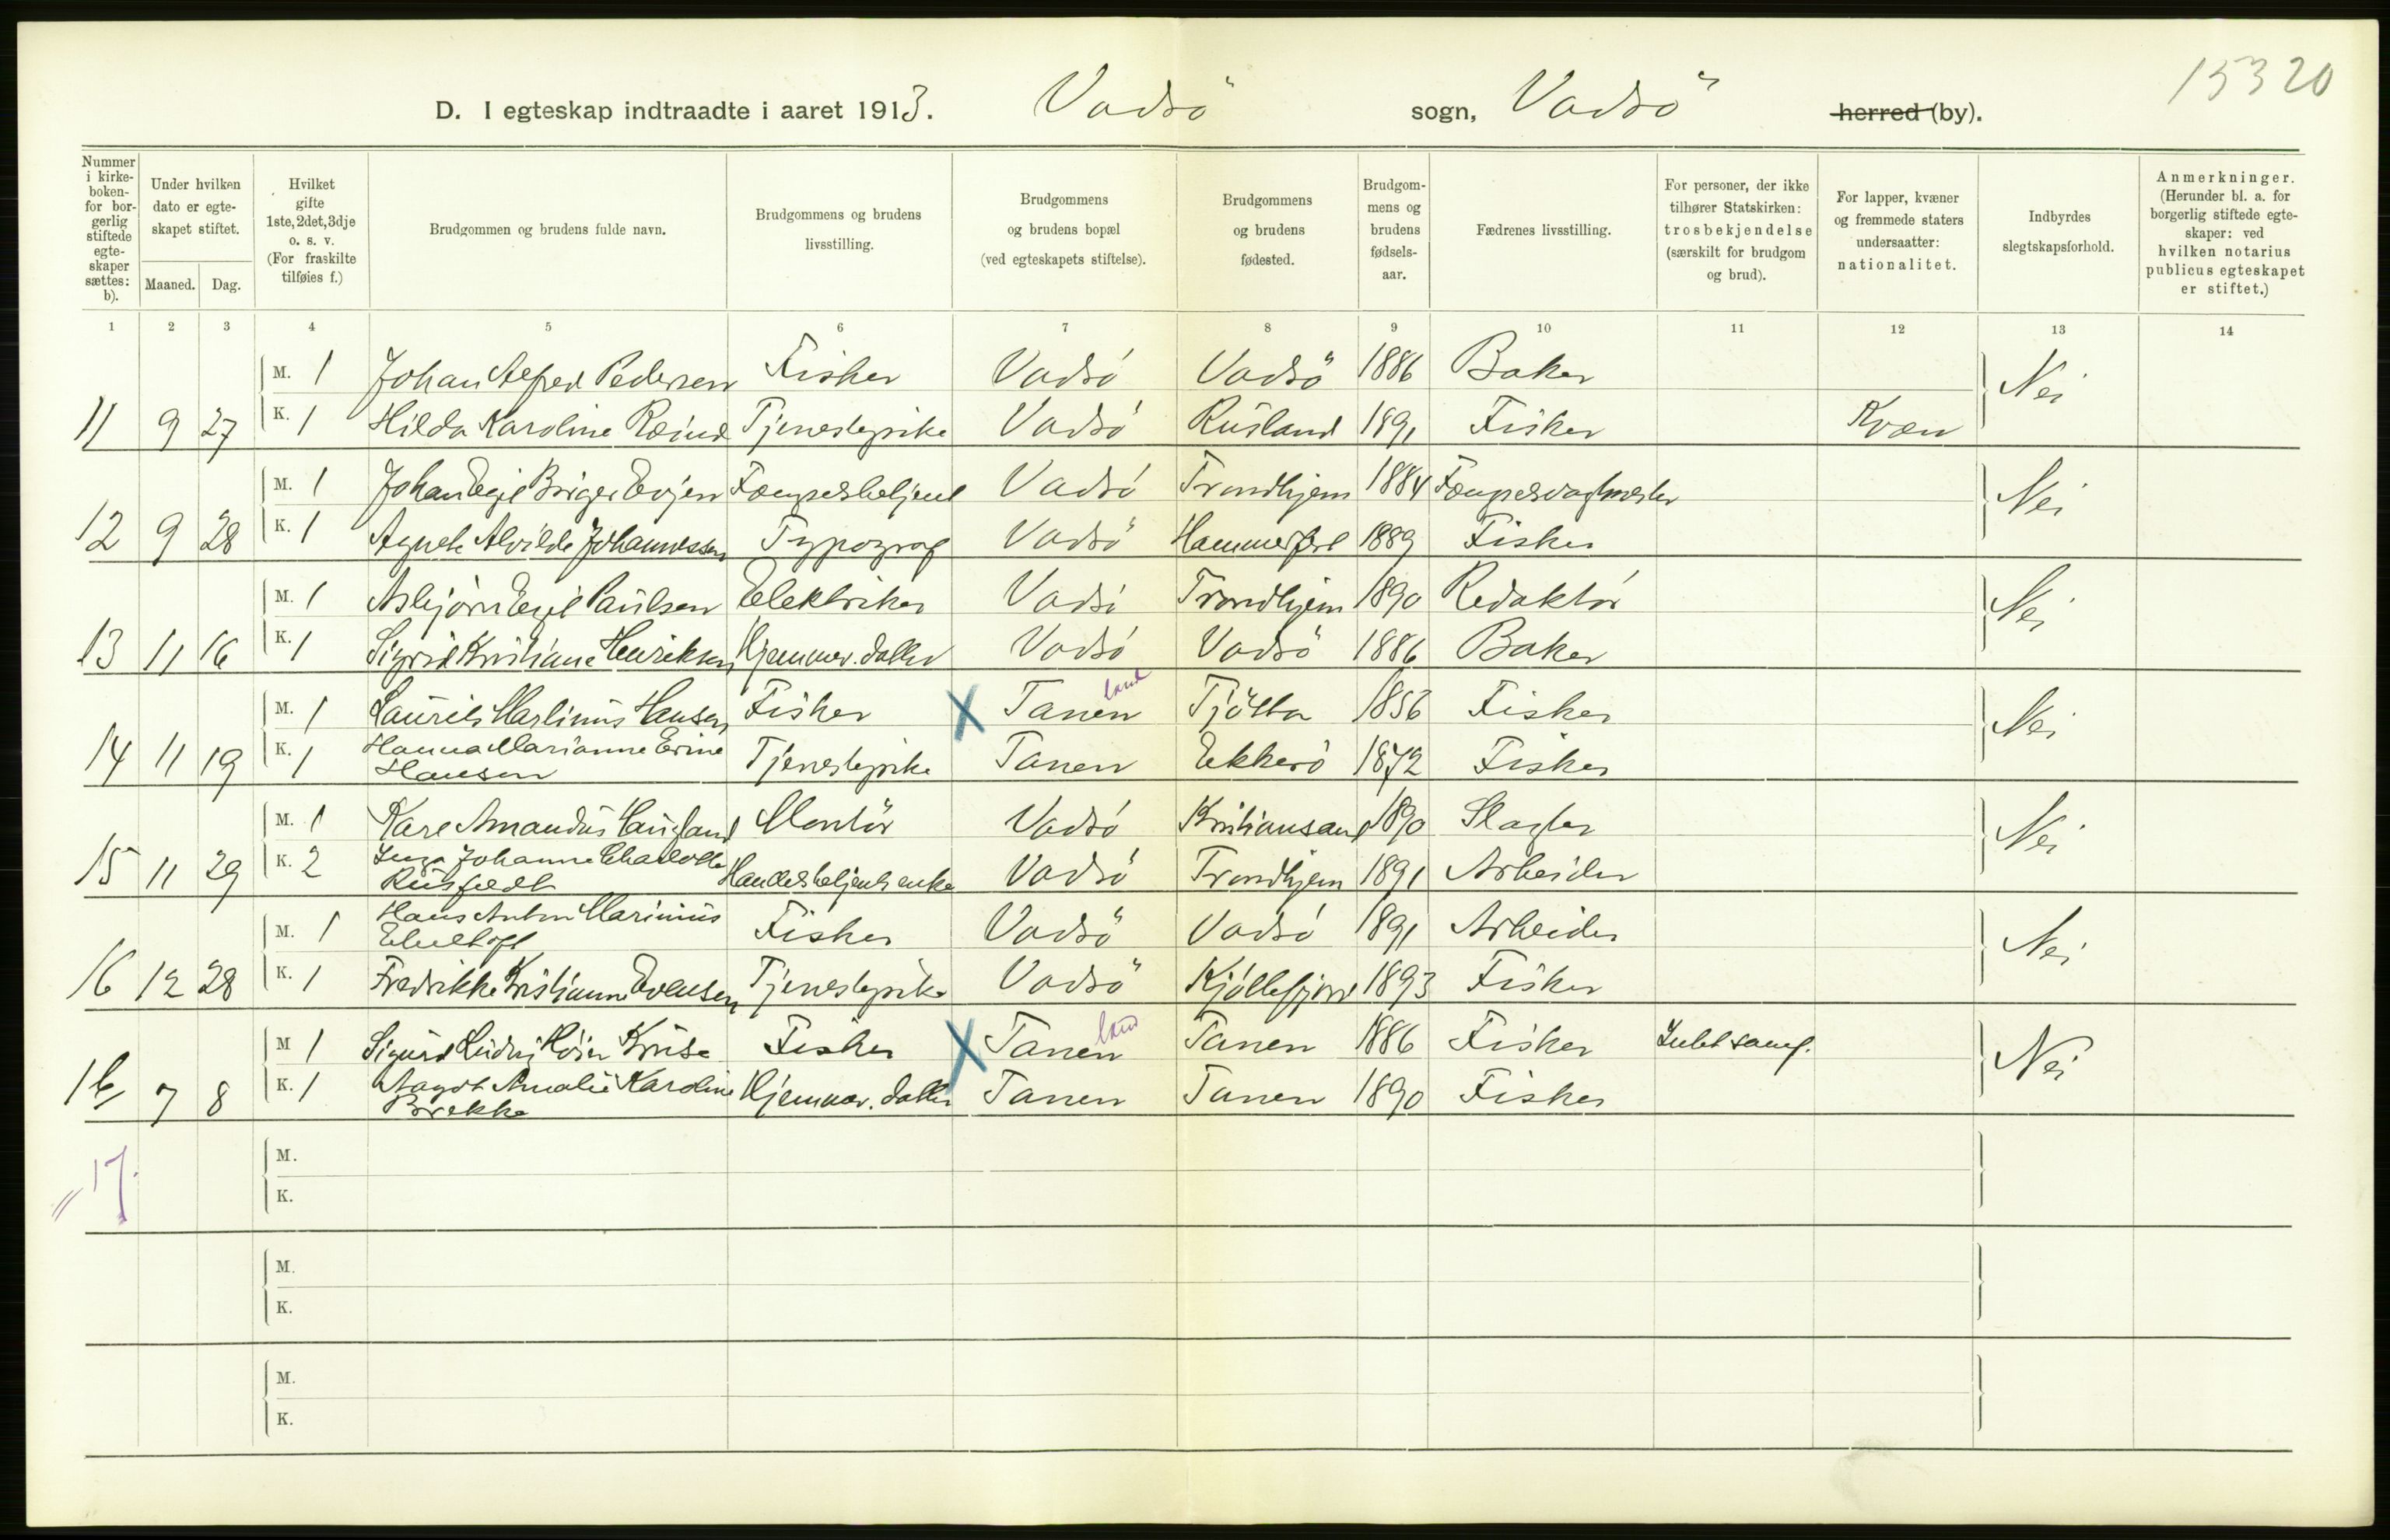 15320
D. I egteskap indtraadte i aaret 1913. Vadsö sogn, Vadsö herred (by).
Nummer i kirke-boken- for bor-gerlig stiftede egte-skaper sættes: b).
Under hvilken dato er egte-skapet stiftet.
Maaned. Dag.
Hvilket gifte 1ste, 2det, 3dje o. s. v. (For fraskilte tilføies f.)
Brudgommen og brudens fulde navn.
Brudgommens og brudens livsstilling.
Brudgommens og brudens bopæl (ved egteskapets stiftelse).
Brudgommens og brudens fødested.
Brudgom-mens og brudens fødsels-aar.
Fædrenes livsstilling.
For personer, der ikke tilhører Statskirken: trosbekjendelse (særskilt for brudgom og brud).
For lapper, kvæner og fremmede staters undersaatter: nationalitet.
Indbyrdes slegtskapsforhold.
Anmerkninger. (Herunder bl. a. for borgerlig stiftede egte-skaper: ved hvilken notarius publicus egteskapet er stiftet.)
1 2 3 4 5 6 7 8 9 10 11 12 13 14
M. 1 Johan Alfred Pedersen Fisker Vadsó Vadsö 1886 Baker Nei
11 9 27 K. 1 Hilda Karoline Tjenestepike Vadsó Rusland 1891 Fisker Kvæn
M. 1 Johan Egil Birger Evjen Fængselsbetjent Vadsó Trondhjem 1884 Fængselsvagtmester Nei
12 9 28 K. 1 Agnete Alvilde Johannessen Typograf Vadsö Hammerfest 1889 Fisker
M. 1 Asbjørn Egil Paulsen Elektriker Vadsó Trondhjem 1890 Redaktör Nei
13 11 16 K. 1 Sigrid Kristiane Henriksen Hjemmev. datter Vadsó Vadsö 1886 Baker
M. 1 Laurits Martinus Hansen Fisker X Tanen land Tjötta 1856 Fisker Nei
14 11 19 K. 1 Hanna Marianne Erine Hansen Tjenestepike Tanen Ekkerö 1872 Fisker
M. 1 Karl Amandus Haugland Montör Vadsó Kristiansand 1890 Slagter Nei
15 11 29 K. 2 Inga Johanne Charlotte Handelsbetjents enke Vadsö Trondhjem 1891 Arbeider
M. 1 Hans Anton Marinius Ebeltoft Fisker Vadsö Vadsó 1891 Arbeider Nei
16 12 28 K. 1 Fredrikke Kristianne Evensen Tjenestepike Vadsö Kjöllefjord 1893 Fisker
M 1 Sigurd Ludvig Kruse Fisker X Tanen land Tanen 1886 Fisker Intet samf. Nei
16 7 8 K. 1 Magda Amalie Karoline Brekke Hjemmev. datter Tanen Tanen 1890 Fisker
17. M.
K.
M.
K.
M.
K.